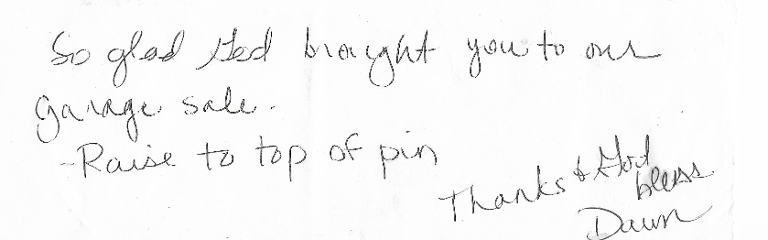 So glad God brought you to our
garage sale.
-Raise to top of pin
Thanks & God
bless
Dawn